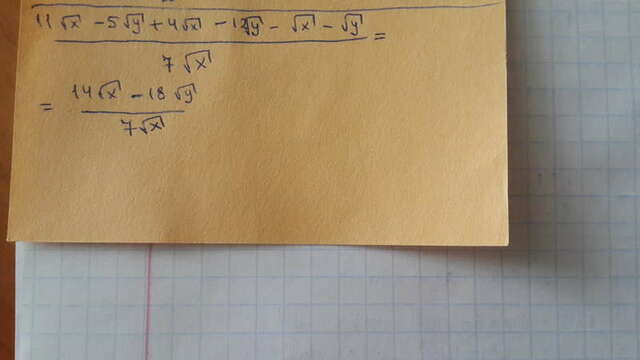 11√x - 5√y + 4√x - 12√y - √x - √y =
7√x
= 14√x - 18√y
7√x